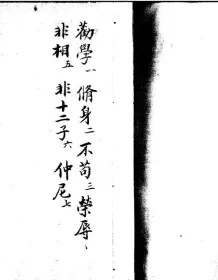 勸學一 脩身二 不苟三 榮辱、
非相五 非十二子六 仲尼七